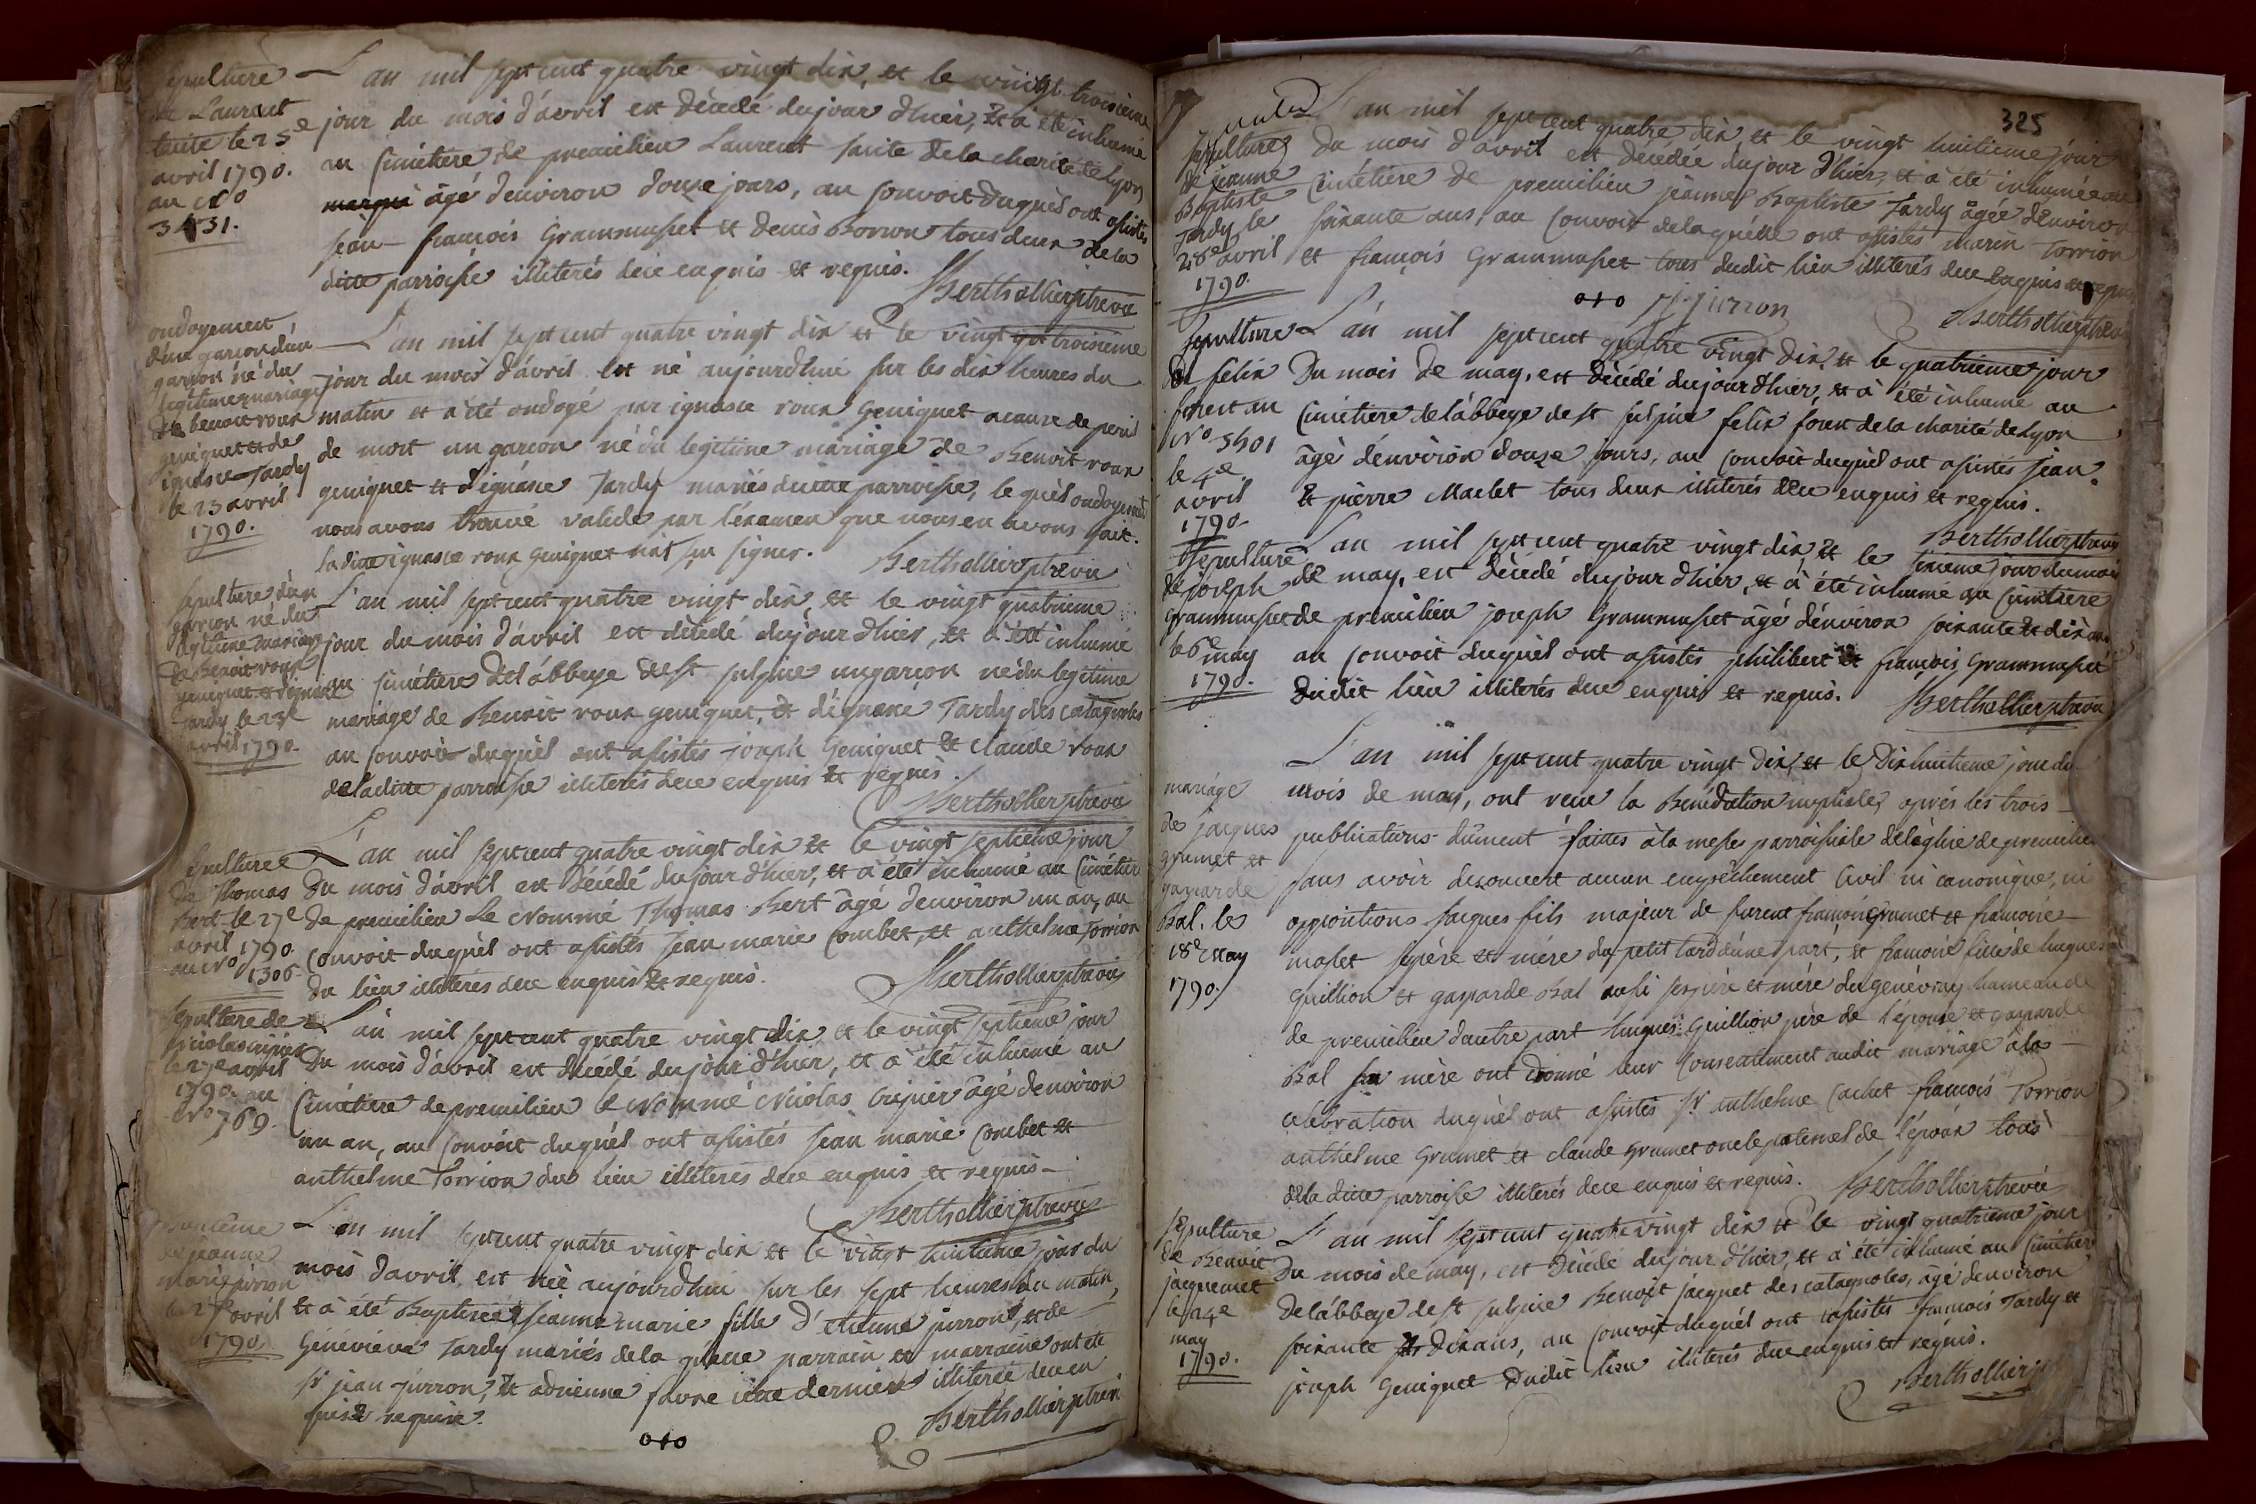 sepulture
de Laurent
suite le 23e
avril 1790.
au No
3431.
L'an mil sept cent quatre vingt dix, et le vingt troisieme
jour du mois d'avril est décédé du jour d'hier, et a été inhumé
au cimétiere de premilieu Laurent suite de la charité de Lyon
marqué âgé d'environ douze jours, au convoit duquel ont assistés
jean françois Grammusset et denis Borron tous deux de la
ditte parroisse illiterés de ce enquis et requis.
Berthollier ptre vic
ondoyement
d'un garçon d'un
garçon né du
legitime mariage
de benoit roux
geniquet et de
ignasie Tardy
le 23 avril
1790.
L'an mil sept cent quatre vingt dix et le vingt troisieme
jour du mois d'avril est né aujourdhui sur les dix heures du
matin et a été ondoyé par ignasie roux Geniquet a cause de peril
de mort un garcon né du legitime mariage de Benoit roux
geniquet et d'ignasie Tardy mariés de cette parroisse, le quel ondoyement
nous avons trouvé valide par l'examen que nous en avons fait.
la ditte ignasie roux Geniquet n'a sçu signer.
Berthollier ptre vic
sepulture d'un
garçon né du
legitime mariage
de Benoit roux
geniquet et d'ignasie
Tardy le 23e
avril 1790.
L'an mil sept cent quatre vingt dix, et le vingt quatrieme
jour du mois d'avril est décédé du jour d'hier, et a été inhumé
au cimétiere de l'abbeye de st sulpice un garçon né du legitime
mariage de Benoit roux geniquet, et d'ignasie Tardy des catagnoles
au convoit duquel ont assistés joseph Geniquet et claude roux
de la ditte parroisse illiterés de ce enquis et requis.
Berthollier ptre vic
sepulture
de Thomas
Bert le 27e
avril 1790
au No 1306
L'an mil sept cent quatre vingt dix et le vingt septieme jour
du mois d'avril est décédé du jour d'hier, et a été inhumé au cimétiere
de premilieu Le nommé Thomas Bert âgé d'environ un an, au
convoit duquel ont assistés jean marie Combet, et anthelme Torrion
du lieu illiterés de ce enquis et requis.
Berthollier ptre vic
sepulture de
Nicolas crépier
le 27e avril
1790. au
No 769.
L'an mil sept cent quatre vingt dix et le vingt septieme jour
du mois d'avril est décédé du jour d'hier, et a été inhumé au
cimétiere de premilieu le nommé Nicolas Crépier âgé d'environ
un an, au convoit duquel ont assistés jean marie Combet et
anthelme Torrion du lieu illiterés de ce enquis et requis.
Berthollier ptre vic
Baptême
de jeanne
marie jurron
le 28e avril
1790.
L'an mil sept cent quatre vingt dix et le vingt huitieme jour du
mois d'avril est née aujourdhui sur les sept heures du matin,
et a été Baptisée jeanne marie fille d'etienne jurron, et de
Généviéve Tardy mariés de la quelle parrain et marraine ont été
sr jean jurron, et adrienne favre cette derniere illiterée de ce en
quise requise.
Berthollier ptre vic
325
sepulture
de jeanne
Baptiste
Tardy le
28e avril
1790.
L'an mil sept cent quatre dix et le vingt huitieme jour
du mois d'avril est décédée du jour d'hier, et a été inhumée au
cimétiere de premilieu jeanne Baptiste Tardy âgée d'environ
soixante ans, au convoit de laquelle ont assistés marin Torrion
et françois Grammusset tous dudit lieu illiterés de ce enquis et requis
jj jurron
Berthollier ptre vic
sepulture
de felix
forest au
No 5401
le 4e
avril
1790
L'an mil sept cent quatre vingt dix, et le quatrieme jour
du mois de may, est décédé du jour d'hier, et a été inhumé au
cimétiere de l'abbeye de st sulpice felix forest de la charité de Lyon
âgé d'environ douze jours, au convoit duquel ont assistés jean
et pierre Maclet tous deux illiterés de ce enquis et requis.
Berthollier ptre vic
sepulture
de joseph
Grammusset
le 6e may
1790.
L'an mil sept cent quatre vingt dix et le sixieme jour du mois
de may, est décédé du jour d'hier, et a été inhumé au cimétiere
de premilieu joseph Grammusset âgé d'environ soixante et dix ans
au convoit duquel ont assistés philibert et françois Grammusset
du dit lieu illiterés de ce enquis et requis.
Berthollier ptre vic
mariage
de jacques
grumet et
gasparde
Bal. le
18e may
1790.
L'an mil sept cent quatre vingt dix, et le dix huitieme jour du
mois de may, ont reçu la Bénédiction nuptiale, après les trois
publications dûment faites à la messe parroissiale de l'église de premilieu
sans avoir decouvert aucun empêchement civil ni canonique, ni
oppositions jacques fils majeur de furent françois Grumet et françoise
maslet ses père et mère du petit lard d'une part, et françoise fille de hugues
quillion et gasparde Bal aussi ses père et mère du genévray hameau de
de premilieu d'autre part hugues Guillion père de l'épouse et gasparde
Bal sa mère ont donné leur consentiment audit mariage à la
celebration duquel ont assistés sr anthelme Cachet françois Torrion
anthelme Grumet et claude Grumet oncle paternel de l'époux tous
de la ditte parroisse illiterés de ce enquis et requis.
Berthollier ptre vic
sepulture
de Benoit
jacquemet
le 24e
may
1790.
L'an mil sept cent quatre vingt dix et le vingt quatrieme jour
du mois de may, est décédé du jour d'hier, et a été inhumé au cimétiere
de l'abbeye de st sulpice Benoit jacquet des catagnoles, âgé d'environ
soixante dix ans, au convoit duquel ont assistés françois Tardy et
joseph Geniquet dudit lieu illiterés de ce enquis et requis.
Berthollier